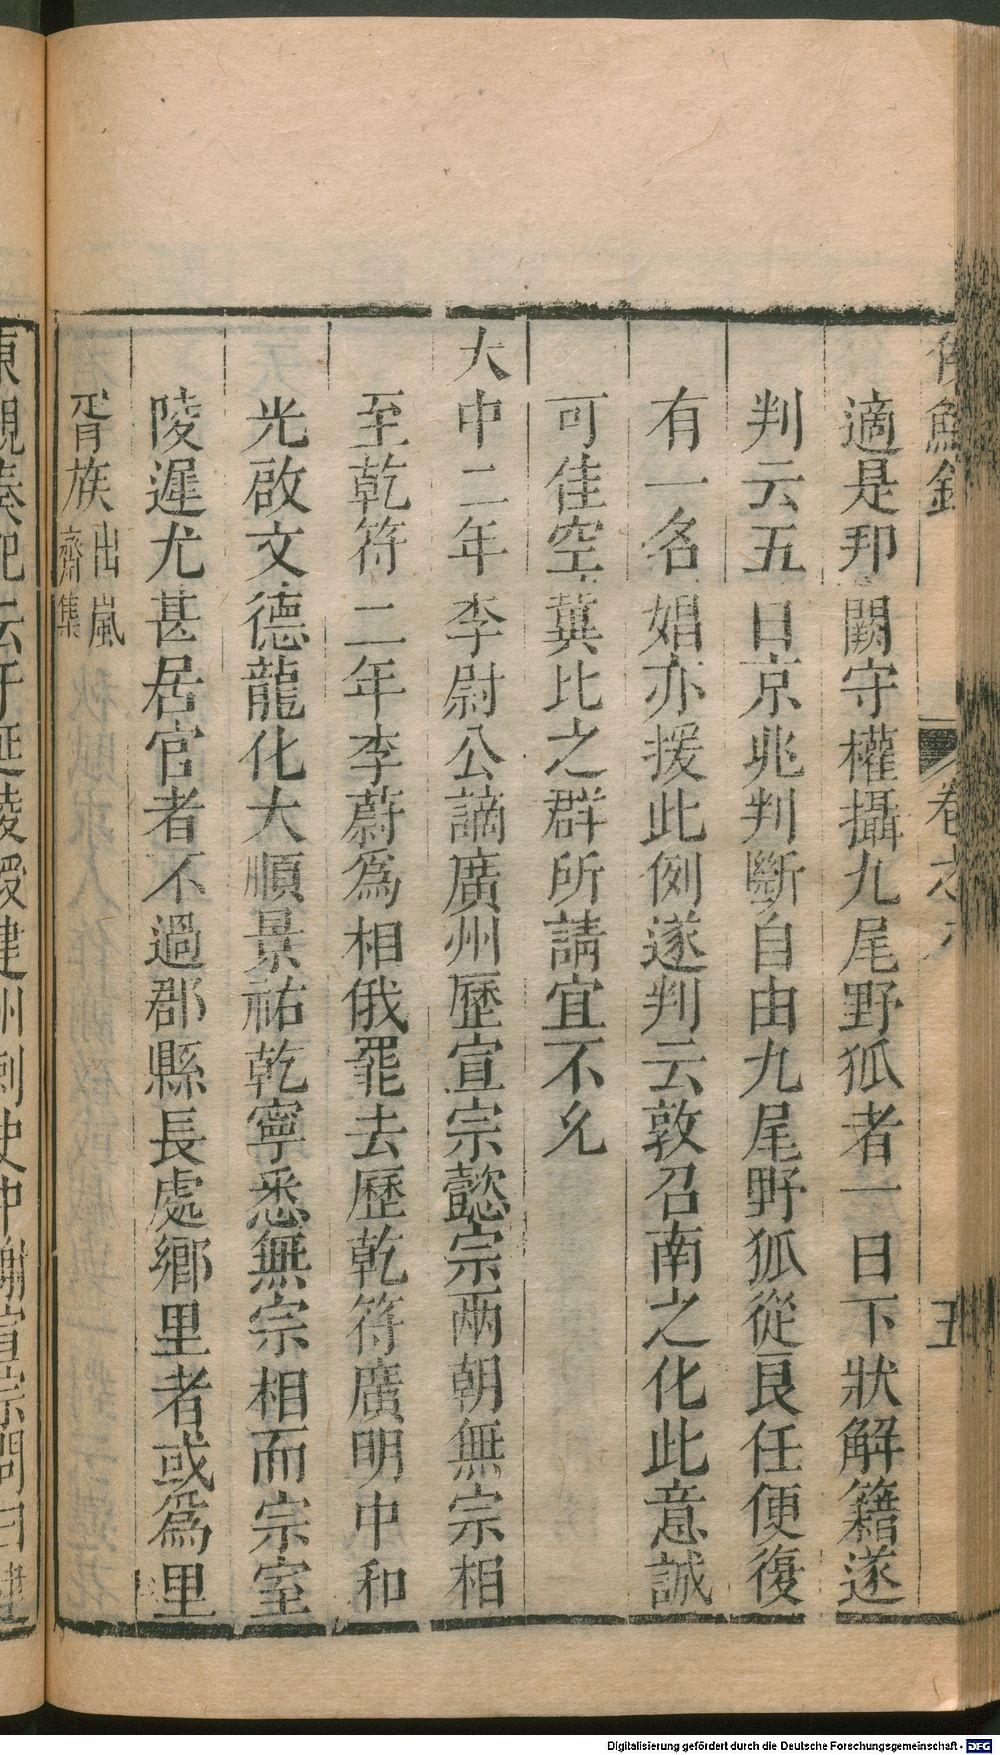 侯鯖錄 卷之八 五
適是邦闕守權攝九尾野狐者一日下狀解籍遂
判云五日京兆判斷自由九尾野狐從良任便復
有一名娼亦援此例遂判云敦召南之化此意誠
可佳空兾比之群所請宜不允
大中二年李尉公謫廣州歷宣宗懿宗兩朝無宗相
至乾符二年李蔚爲相俄罷去歷乾符廣明中和
光啟文德龍化大順景祐乾寧悉無宗相而宗室
陵遲尤甚居官者不過郡縣長處鄉里者或爲里
胥族出嵐齋集
東觀奏記云于延陵授建州刺史中謝宣宗問曰建
Digitalisierung gefördert durch die Deutsche Forschungsgemeinschaft - DFG